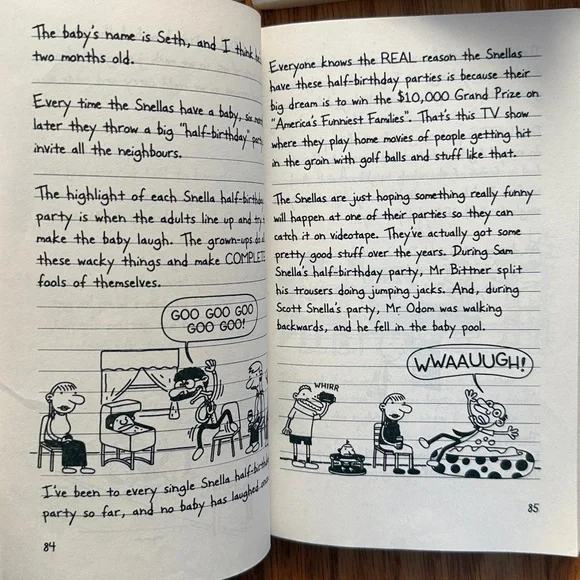 The baby's name is Seth, and I think
two months old.
Every time the Snellas have a baby, six
later they throw a big "half-birthday"
invite all the neighbours.
The highlight of each Snella half-birthday
party is when the adults line up and
make the baby laugh. The grown-ups
these wacky things and make COMPLETE
fools of themselves.
GOO GOO GOO
GOO GOO!
I've been to every single Snella half-birthday
party so far, and no baby has laughed
84
Everyone knows the REAL reason the Snellas
have these half-birthday parties is because their
big dream is to win the $10,000 Grand Prize on
"America's Funniest Families". That's this TV show
where they play home movies of people getting hit
in the groin with golf balls and stuff like that.
The Snellas are just hoping something really funny
will happen at one of their parties so they can
catch it on videotape. They've actually got some
pretty good stuff over the years. During Sam
Snella's half-birthday party, Mr Bittner split
his trousers doing jumping jacks. And, during
Scott Snella's party, Mr Odom was walking
backwards, and he fell in the baby pool.
WWAAUUGH!
WHIRR
85